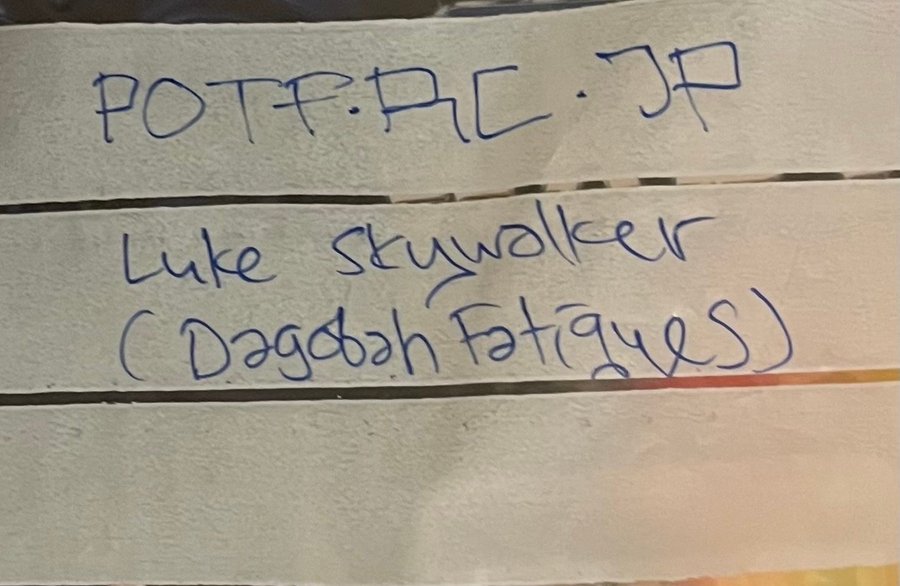 POTF.RC.JP
Luke Skywalker
(Dagobah Fatigues)